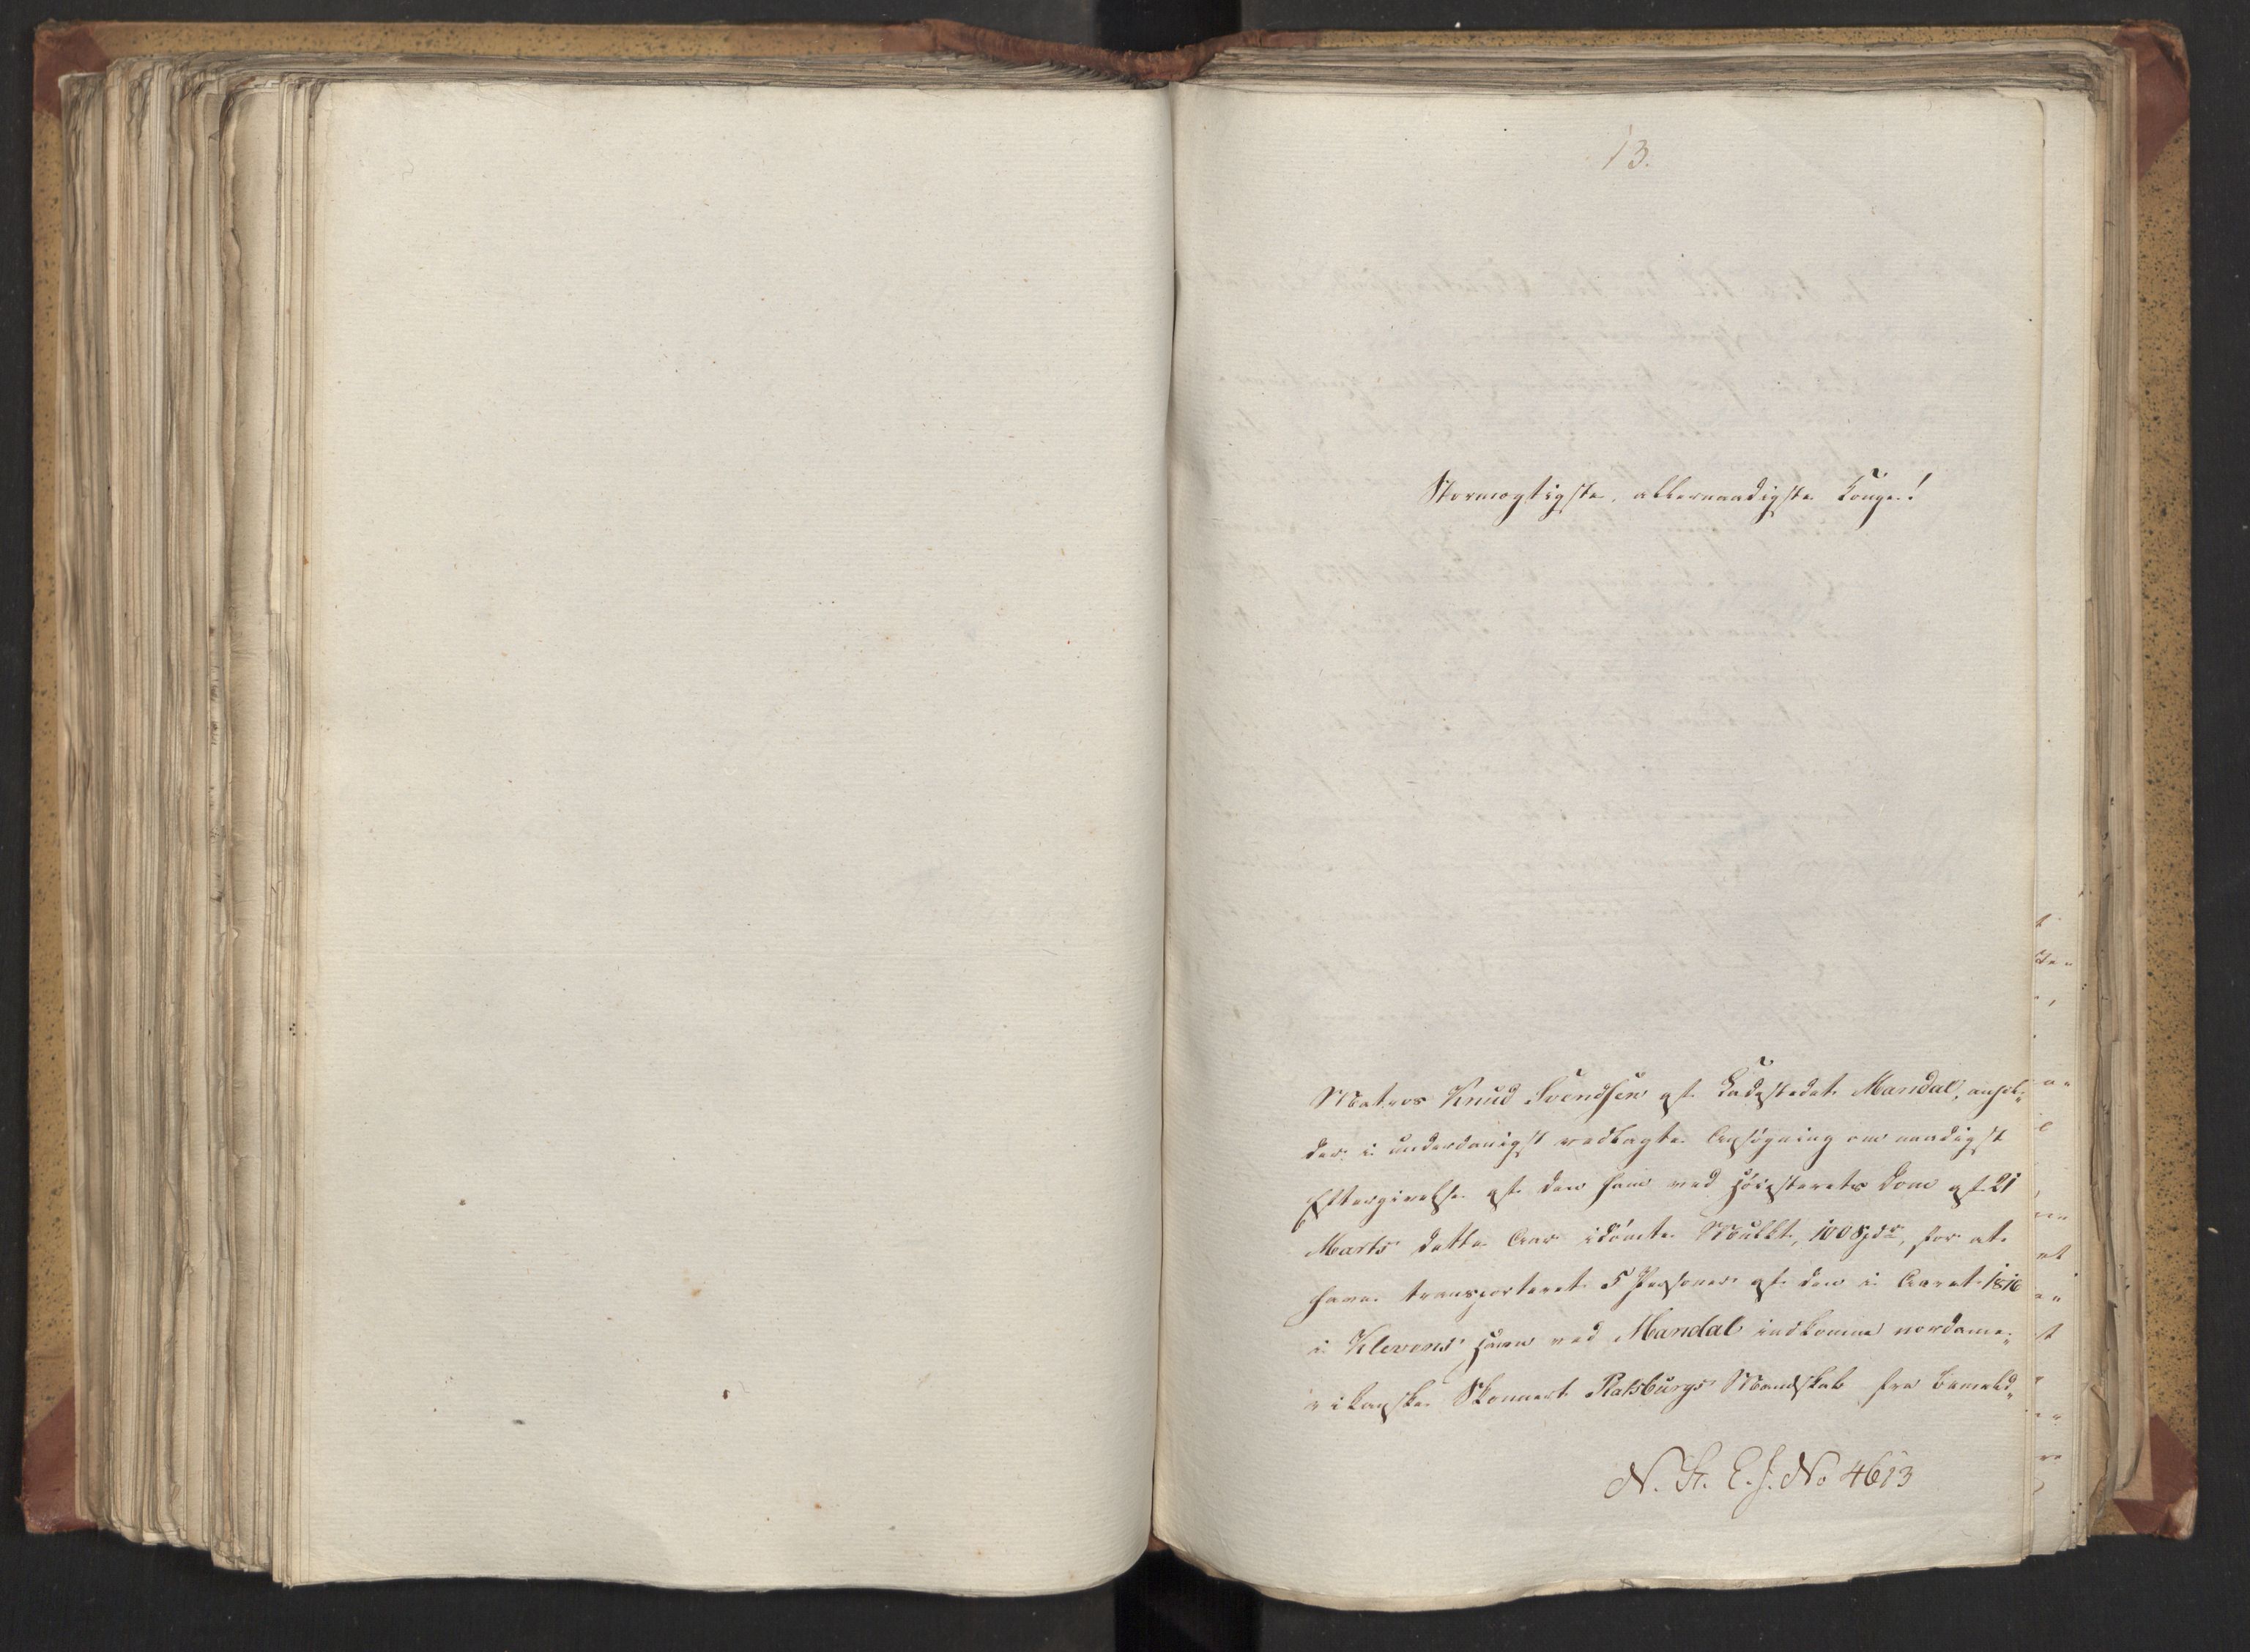 13.
Stormægtigste, allernaadigste Konge!
Matros Knud Svendsen af Ladestedet Mandal, anhol„
der i underdanigst vedlagte Ansøgning om naadigst
Eftergivelse af den ham ved Høiesterets Dom af 21
Marts dette Aar idømte Mulkt, 100 Spdr, for at
have transporteret 5 Personer af den i Aaret 1816
i Klevens Havn ved Mandal indkomne nordame„
rikanske Skonnert Plattsburgs Mandskab fra bemeld„
N. St. E. J. No 4613